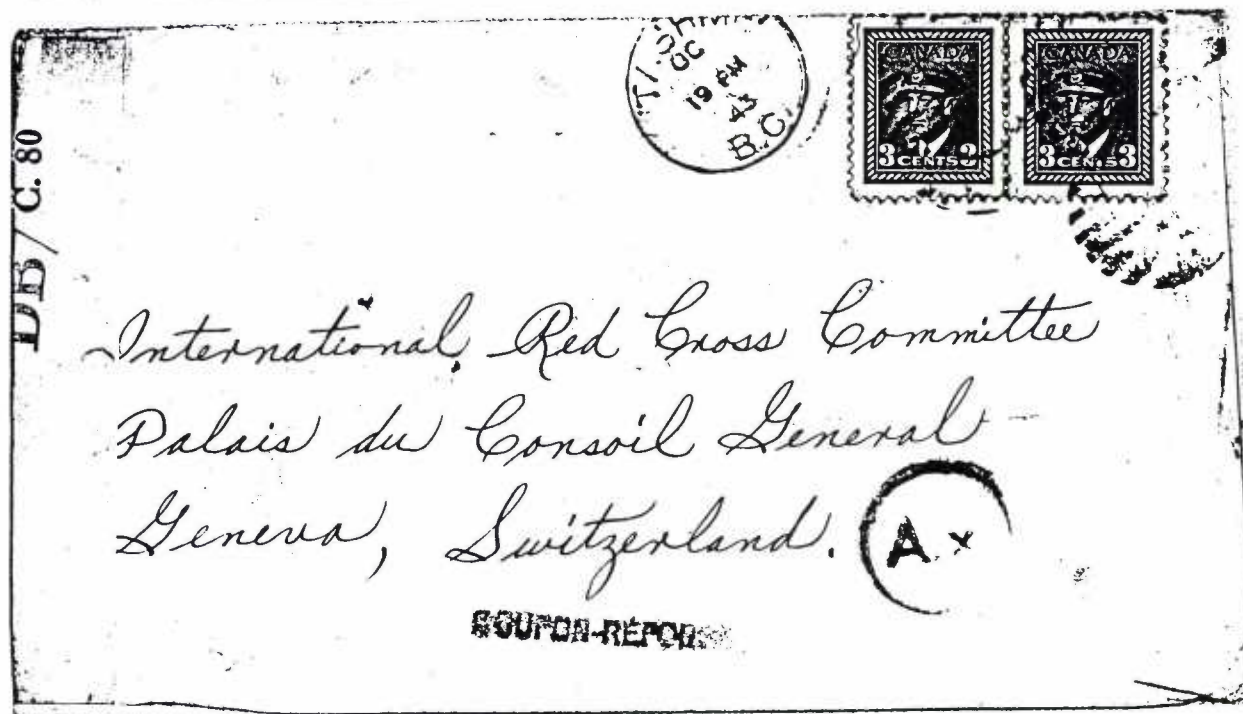 OC
19 PM
43
B.C.
CANADA CANADA
3 CENTS 3 3 CENTS 3
DB/C. 80
International Red Cross Committee
Palais du Consoil General
Geneva, Switzerland.
A
COUPON-RÉPONSE